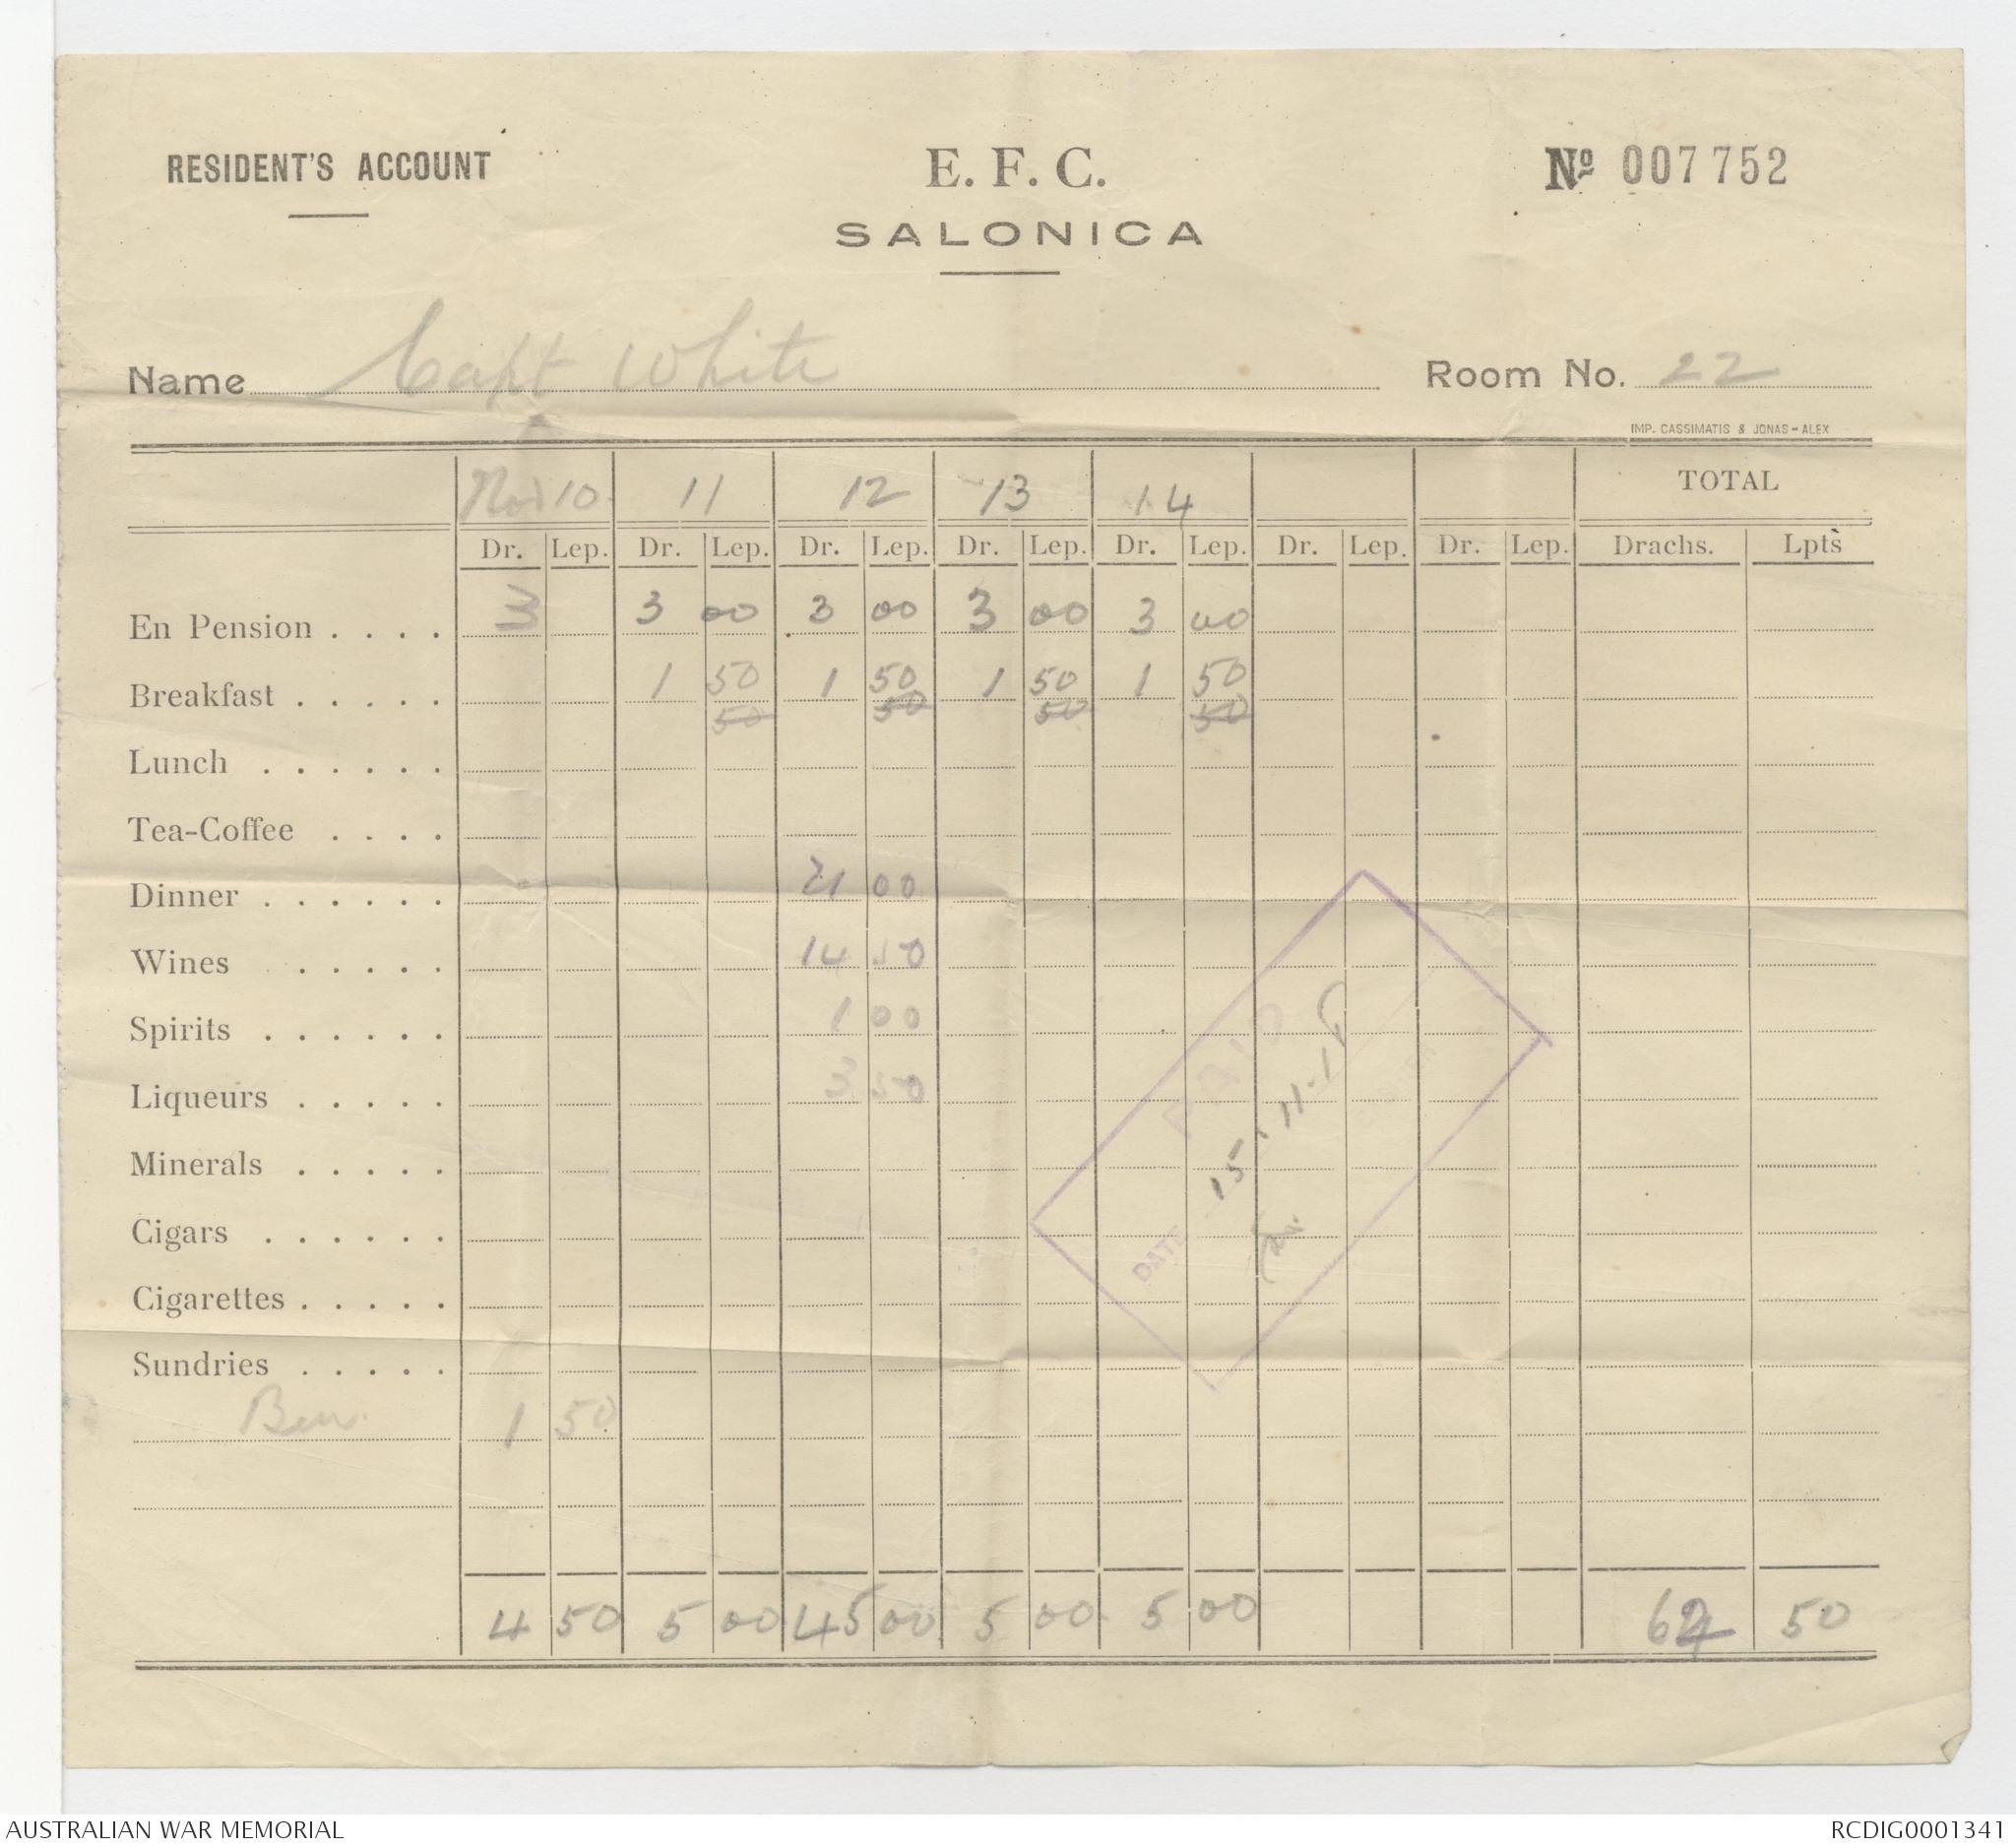 RESIDENT'S ACCOUNT
E. F. C.
SALONICA
Nº 007752
Name Capt White
Room No. 22
IMP. CASSIMATIS & JONAS - ALEX
Nov 10 11 12 13 14 TOTAL
Dr. Lep. Dr. Lep. Dr. Lep. Dr. Lep. Dr. Lep. Dr. Lep. Dr. Lep. Drachs. Lpts
En Pension . . . . 3 3 00 3 00 3 00 3 00
Breakfast . . . . . 1 50 1 50 1 50 1 50
50 50 50 50
Lunch . . . . . .
Tea-Coffee . . . .
Dinner . . . . . . 21 00
Wines . . . . . 14 50
Spirits . . . . . . 1 00
Liqueurs . . . . . 3 50
Minerals . . . . .
Cigars . . . . . .
Cigarettes . . . . .
Sundries . . . . .
1 50
4 50 5 00 45 00 5 00 5 00 50
PAID
15-11-18
DATE
AUSTRALIAN WAR MEMORIAL
RCDIG0001341